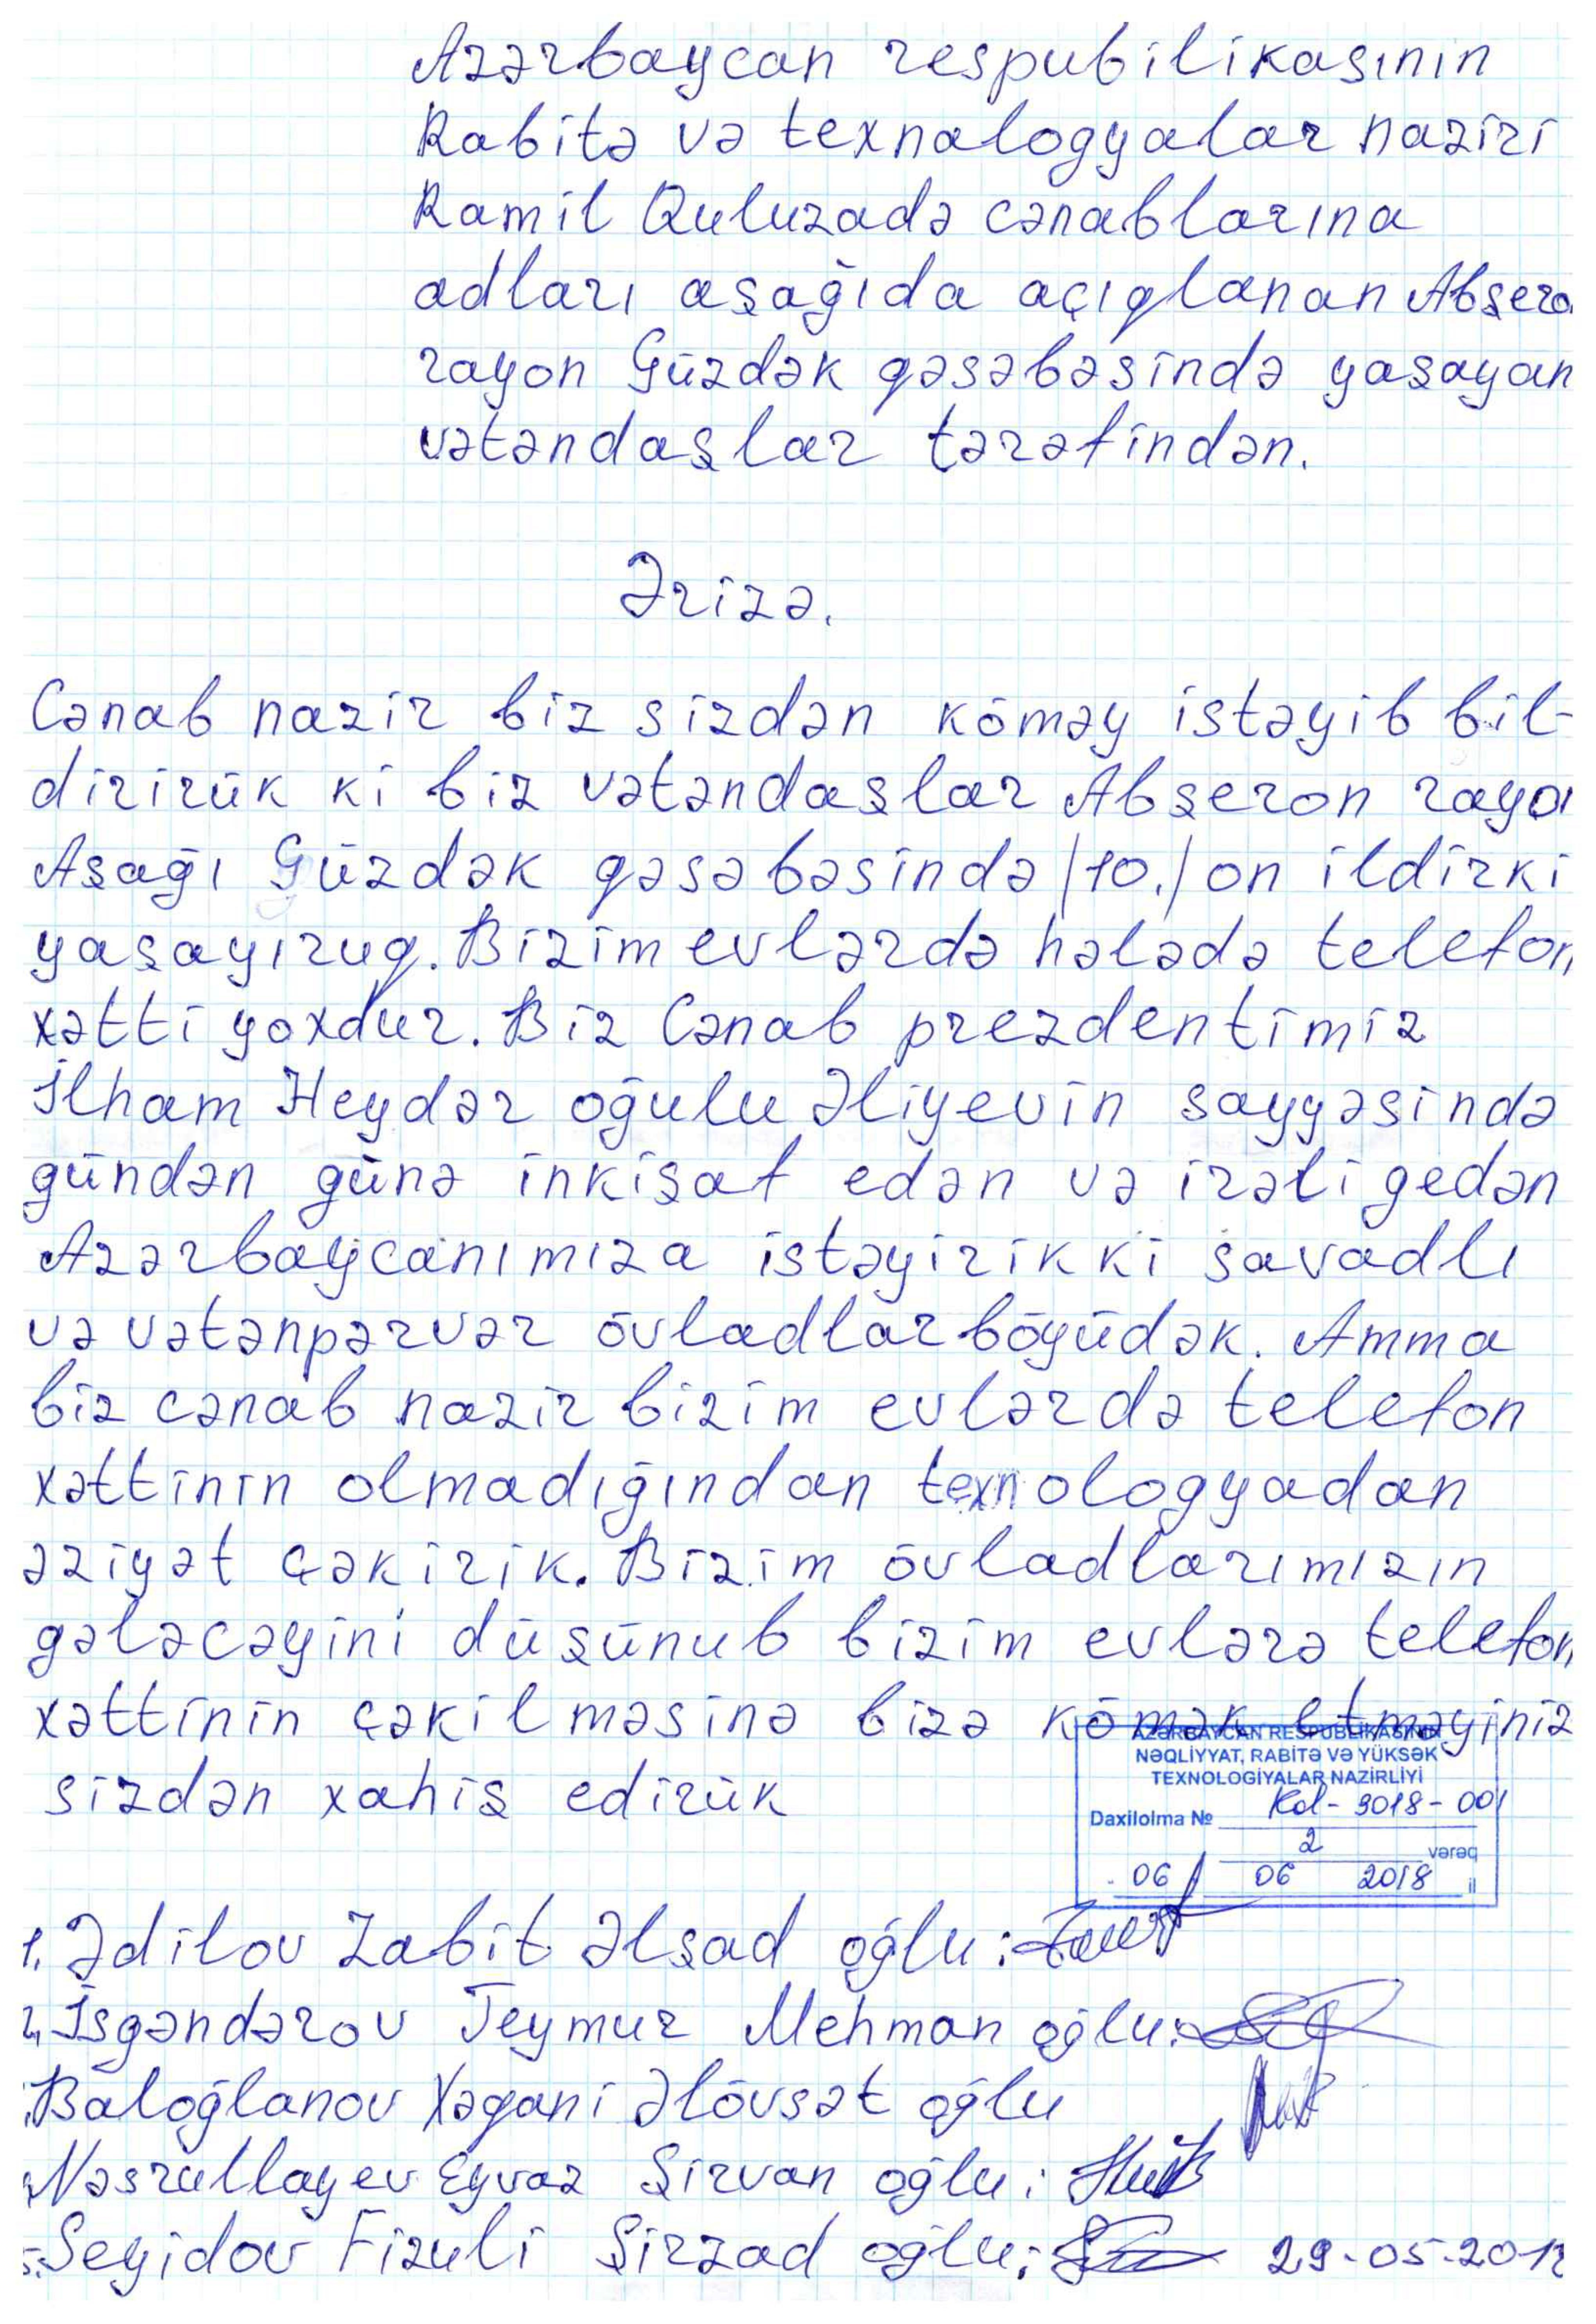 Azərbaycan respubilikasının
Rabitə və texnalogyalar naziri
Ramil Quluzadə cənablarına
adları aşağıda açıqlanan Abşero
rayon Güzdək qəsəbəsində yaşayan
vətəndaşlar tərəfindən.
Ərizə.
Cənab nazir biz sizdən köməy istəyib bil-
dirirük ki biz vətəndaşlar Abşeron rayo
Aşağı Güzdək qəsəbəsində /10./ on ildirki
yaşayıruq. Bizim evlərdə hələdə telefon
xətti yoxdur. Biz Cənab prezdentimiz
İlham Heydər oğulu Əliyevin sayyəsində
gündən günə inkişaf edən və irəli gedən
Azərbaycanımıza istəyirikki savadlı
və vətənpərvər övladlar böyüdək. Amma
biz cənab nazir bizim evlərdə telefon
xəttinin olmadığından texnologyadan
əziyət çəkirik. Bizim övladlarımızın
gələcəyini düşünub bizim evlərə telefon
xəttinin çəkilməsinə bizə kömək etməyiniz
sizdən xahiş edirük
AZƏRBAYCAN RESPUBLİKASININ
NƏQLİYYAT, RABİTƏ VƏ YÜKSƏK
TEXNOLOGİYALAR NAZİRLİYİ
Daxilolma № Kol-9018-001
2 vərəq
06 06 2018 il
1. Ədilov Zabit Əlşad oğlu:
2. İsgəndərov Teymur Mehman oğlu:
Baloğlanov Xəqani Əlövsət oğlu
Nəsrullayev Eyvaz Şirvan oğlu:
5. Seyidov Fizuli Şirzad oğlu: 29-05-201